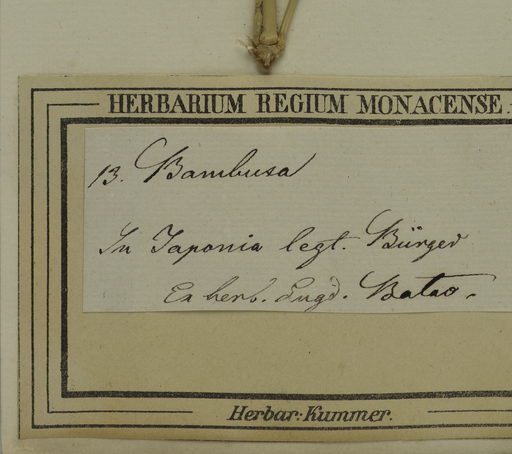 HERBARIUM REGIUM MONACENSE.
13. Bambusa
In Japonia legt. Bürger
Ex herb. Lugd. Batav.
Herbar: Kummer.